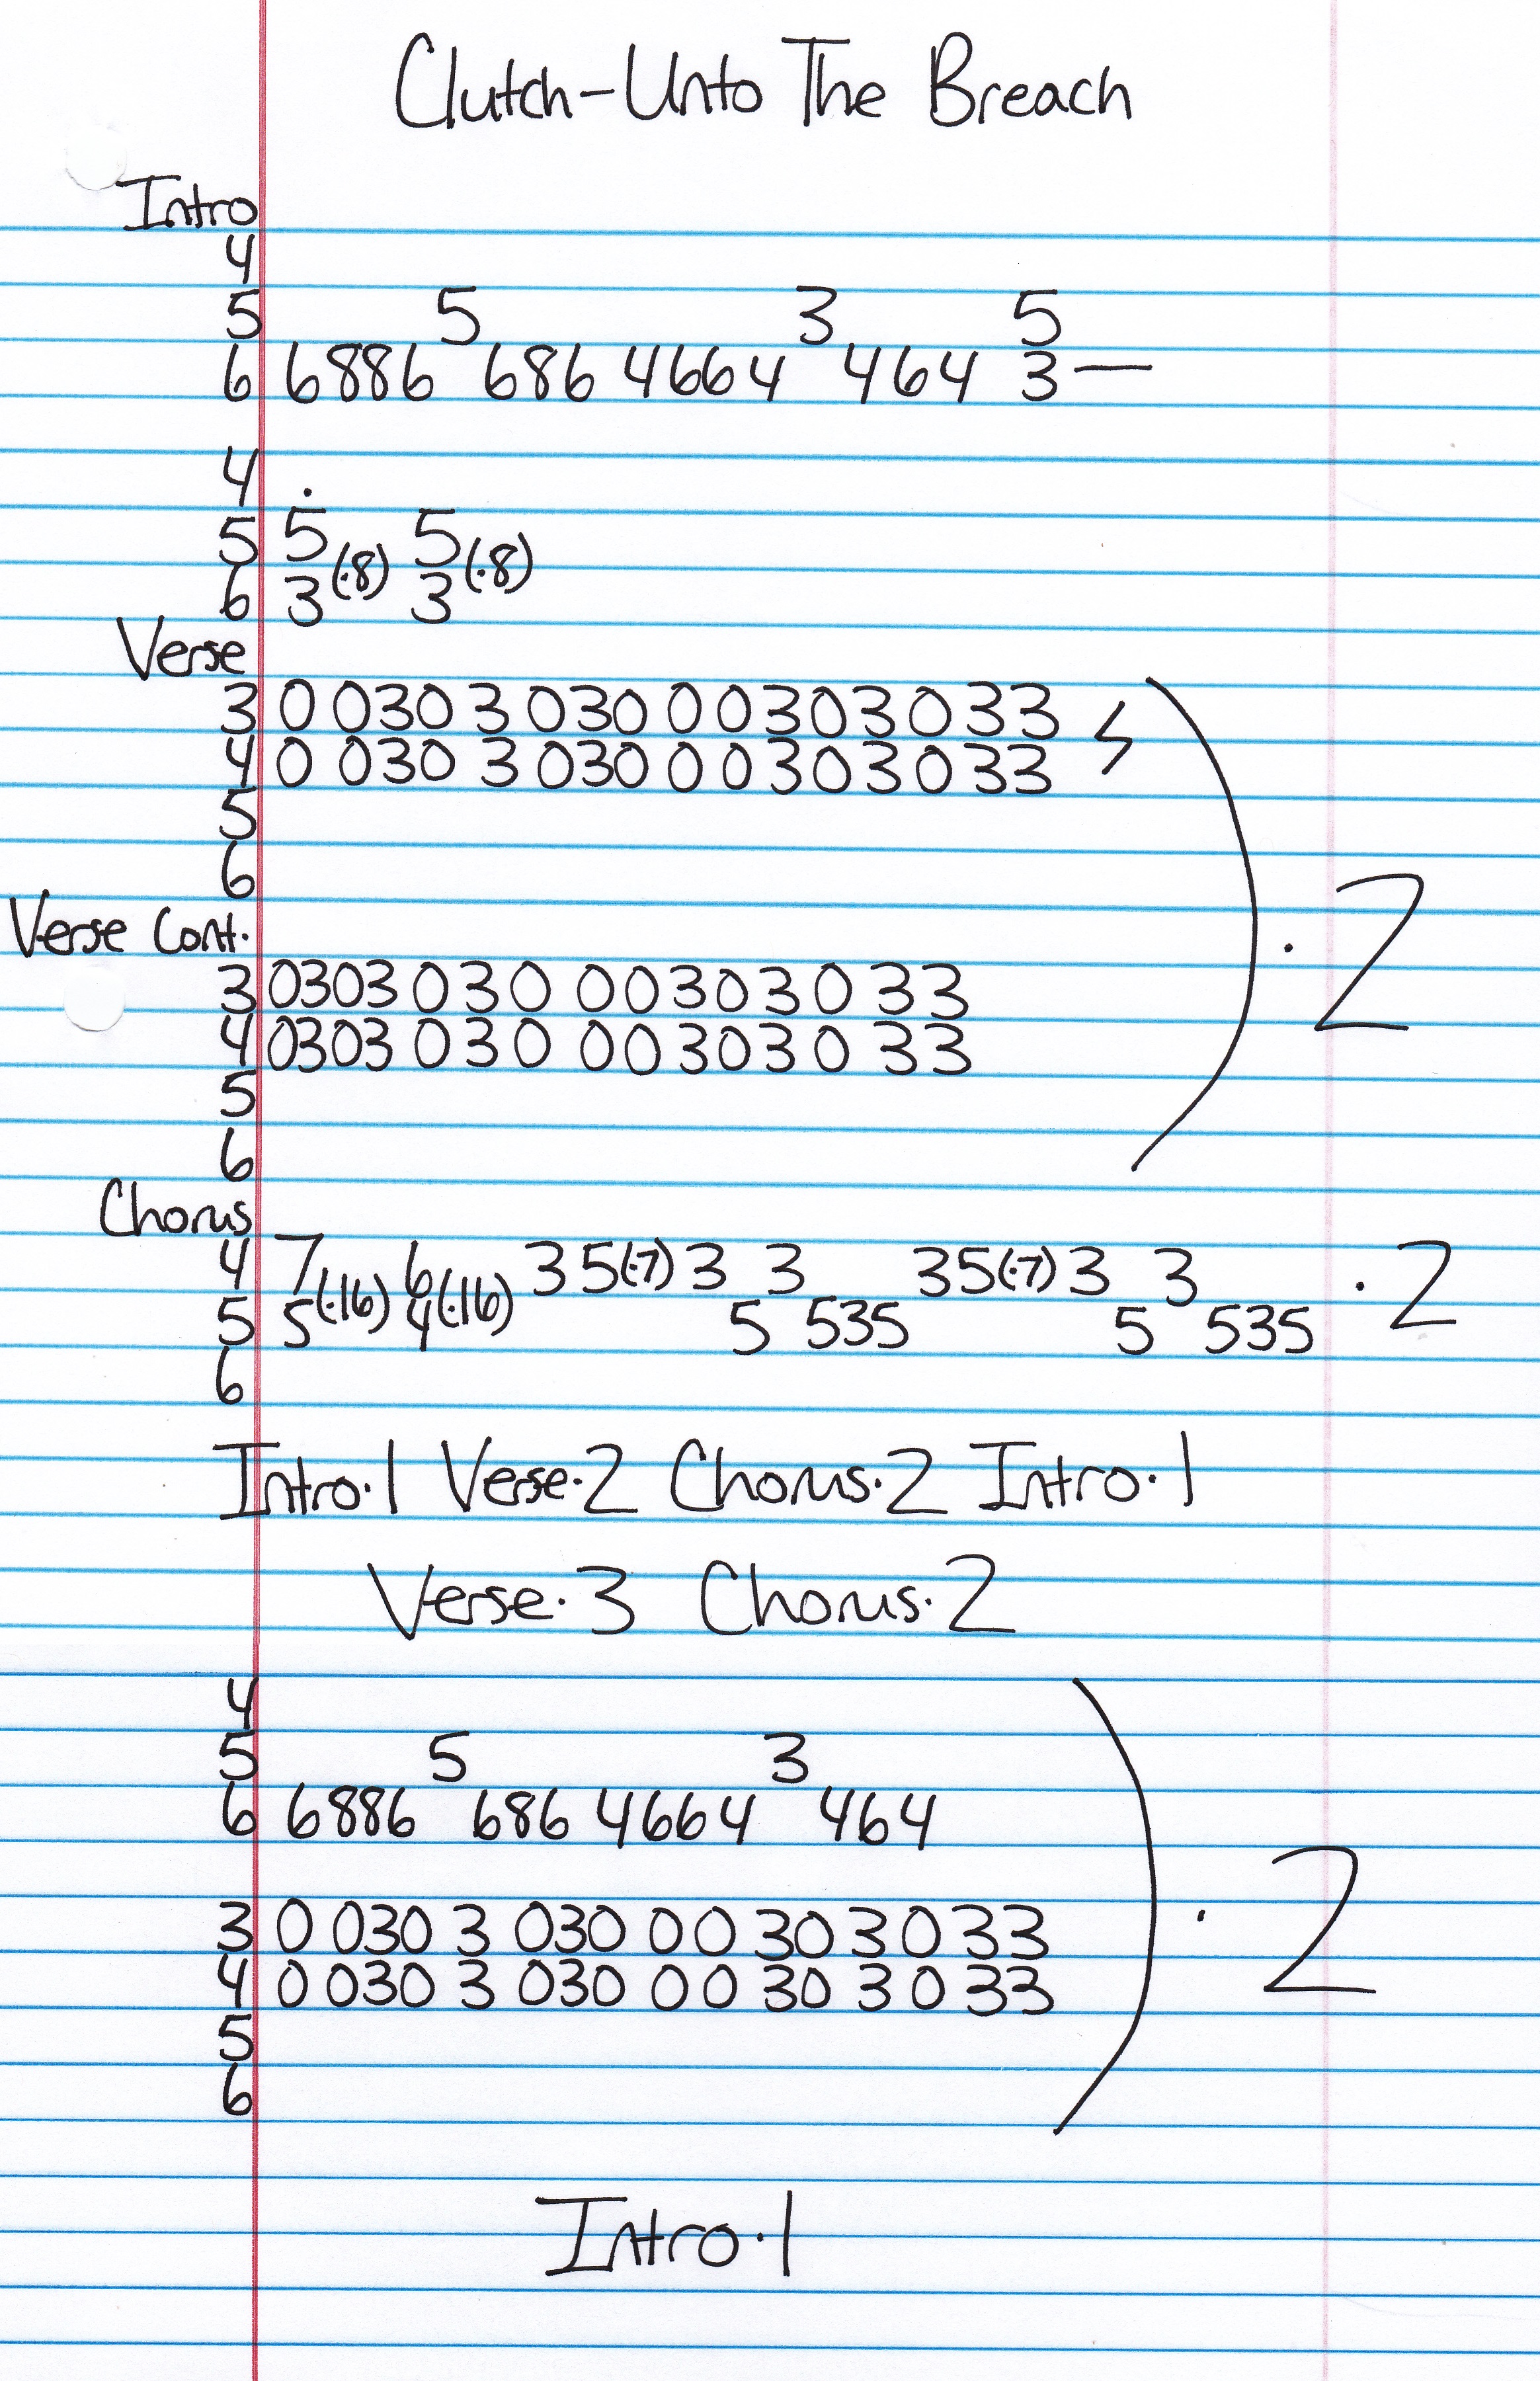 Clutch-Unto The Breach
Intro
4
5 5 3 5
6 6886 686 4664 464 3—
4 .
5 5 (·8) 5 (·8)
6 3 3
Verse
3 0 030 3 030 0 0 3 0 3 0 33
4 0 030 3 030 0 0 3 0 3 0 33
5
6
· 2
Verse Cont.
3 0303 0 3 0 0 0 3 0 3 0 33
4 0303 0 3 0 0 0 3 0 3 0 33
5
6
Chorus
4 7(·16) 6(·16) 3 5(·7) 3 3 35(·7) 3 3 · 2
5 5 4 5 535 5 535
6
Intro·1 Verse·2 Chorus·2 Intro·1
Verse·3 Chorus·2
4
5 5 3
6 6886 686 4664 464
· 2
3 0 030 3 030 0 0 30 3 0 33
4 0 030 3 030 0 0 30 3 0 33
5
6
Intro·1